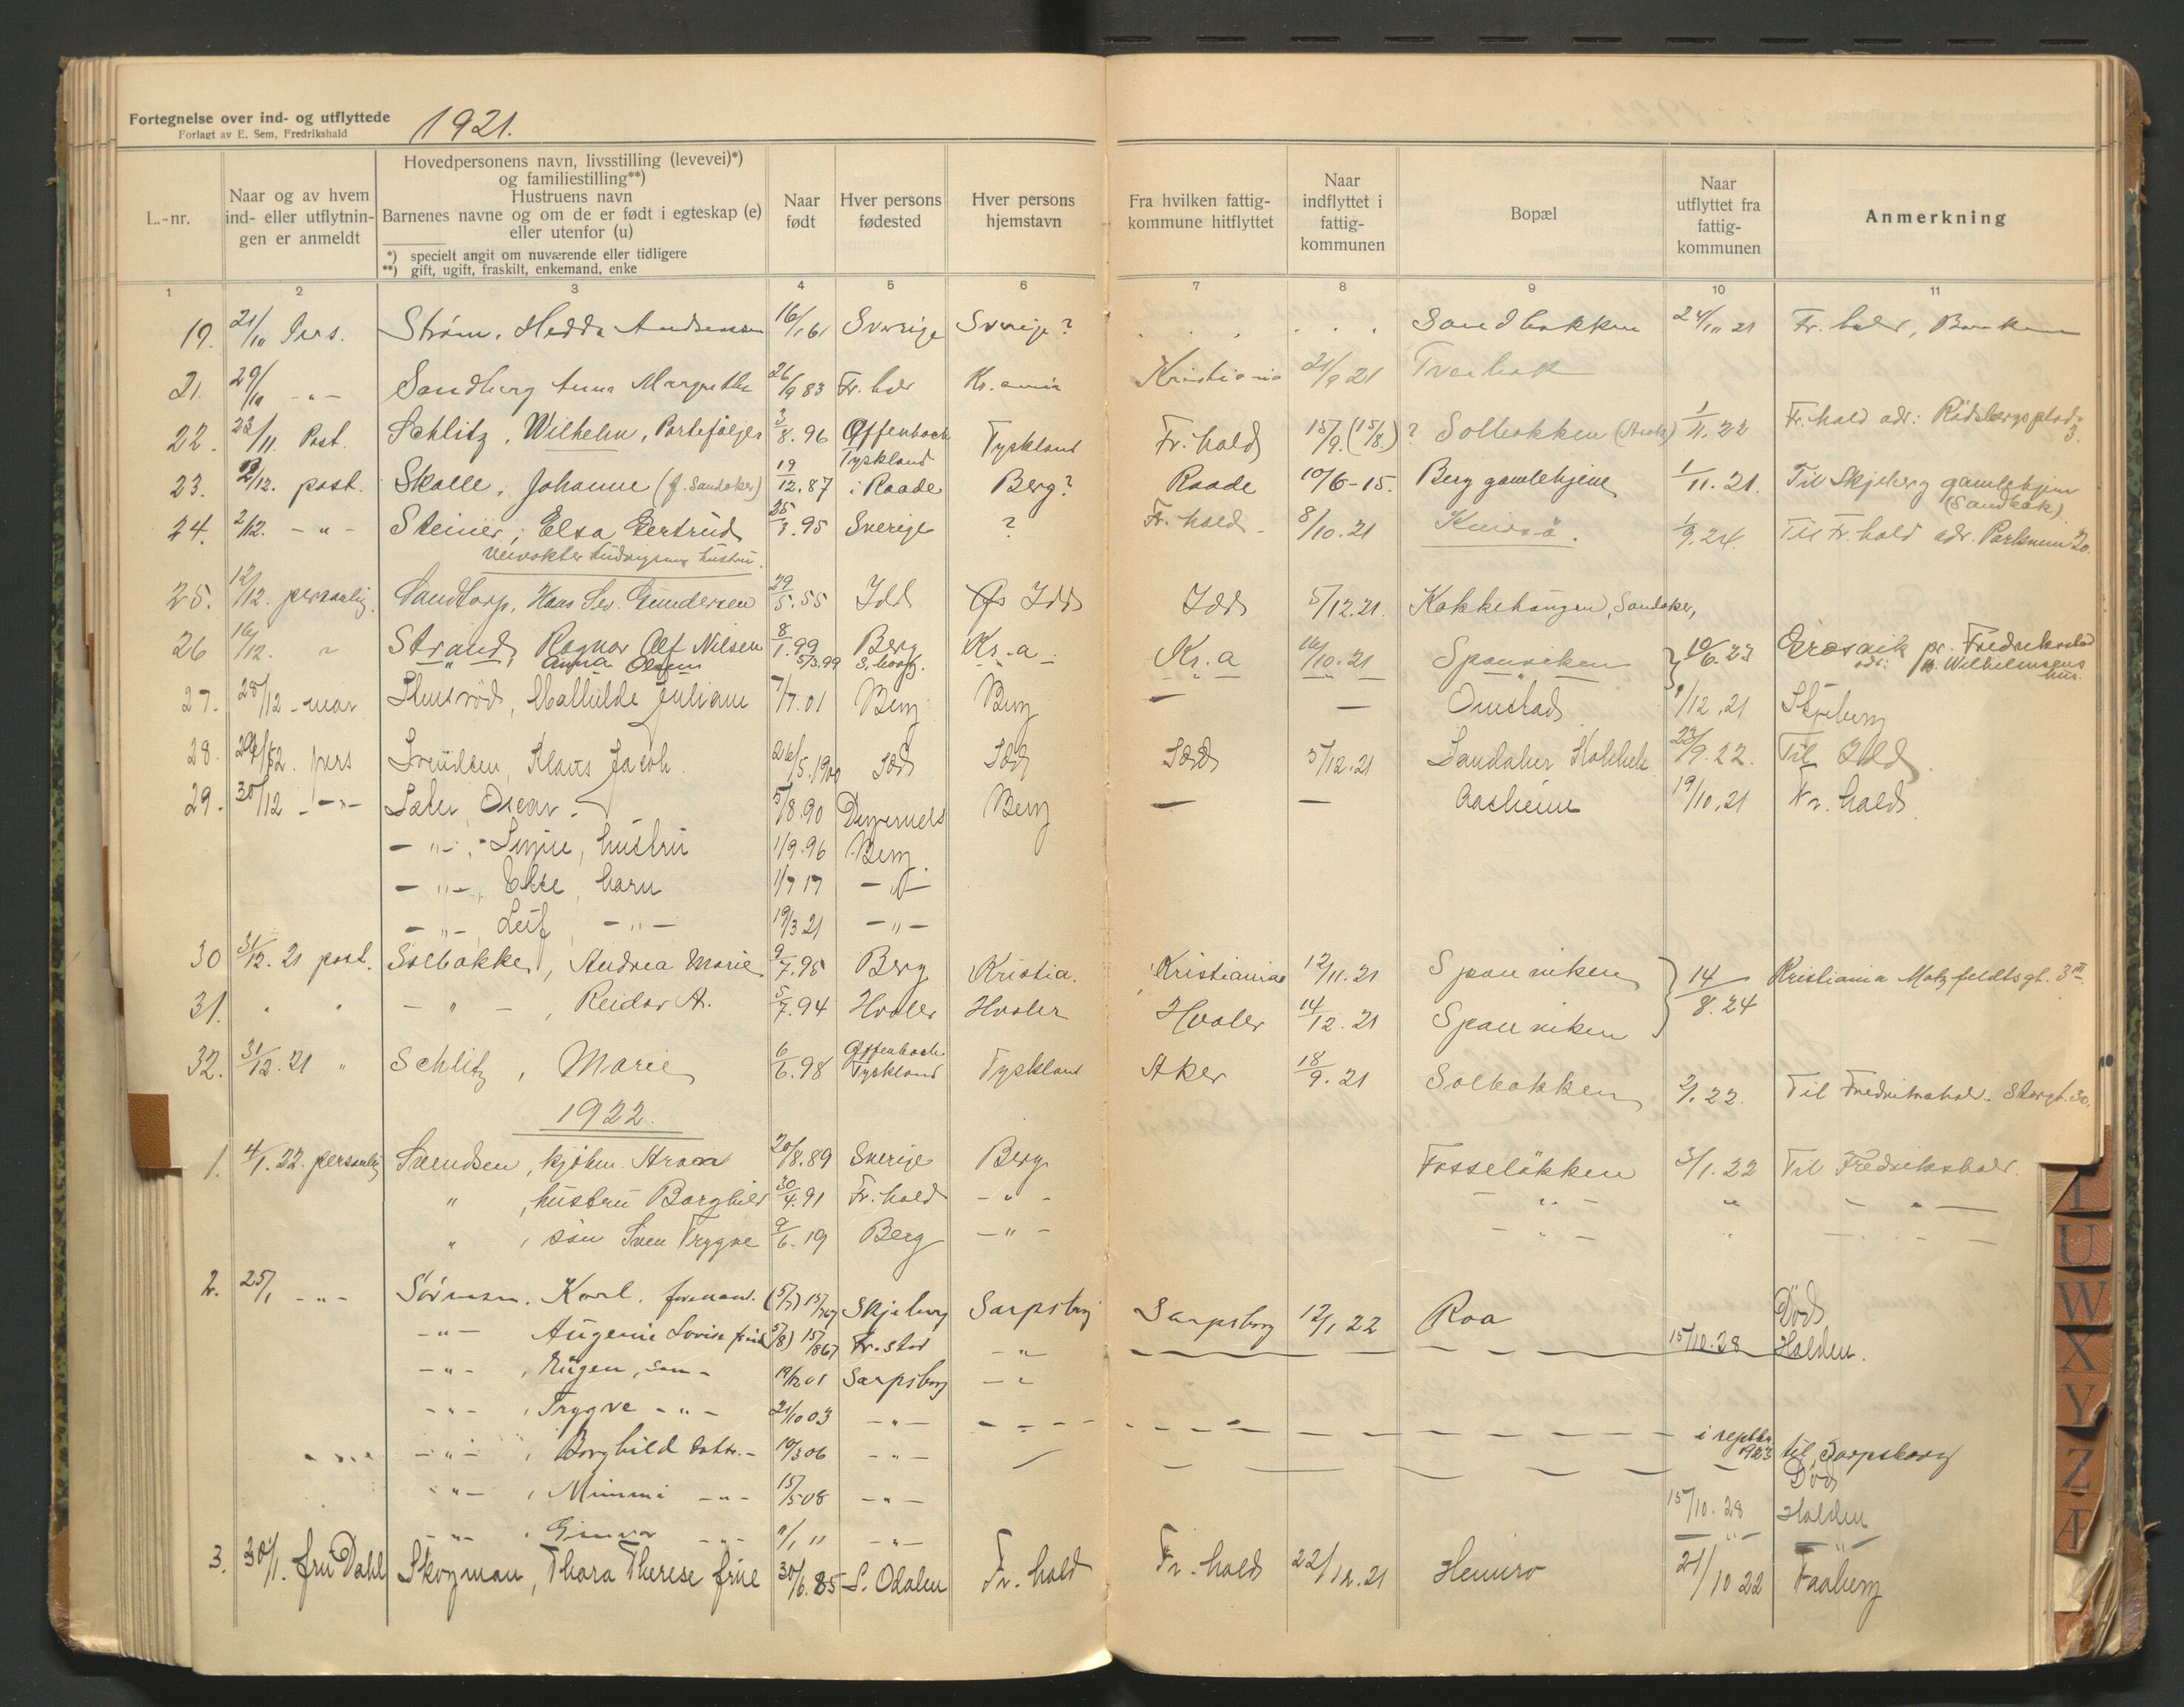 Fortegnelse over ind- og utflyttede 1921.
Forlagt av E. Sem, Fredrikshald
L.-nr.
Naar og av hvem ind- eller utflytnin- gen er anmeldt
Hovedpersonens navn, livsstilling (levevei)*)
og familiestilling**)
Hustruens navn
Barnenes navne og om de er født i egteskap (e)
eller utenfor (u)
*) specielt angit om nuværende eller tidligere
**) gift, ugift, fraskilt, enkemand, enke
Naar født
Hver persons fødested
Hver persons hjemstavn
Fra hvilken fattig- kommune hitflyttet
Naar indflyttet i fattig- kommunen
Bopæl
Naar utflyttet fra fattig- kommunen
Anmerkning
1 2 3 4 5 6 7 8 9 10 11
19. 21/10 Pers. Strøm, Hedda Andrensen 16/1 61 Sverige Sverige? Sandbakken 24/11 21 Fr. hald, Banken
21. 29/10 -"- Sandberg Anna Margrethe 26/9 83 Fr. hald Kr.ania Kristiania 21/9 21 Tverbak
22. 23/11. Post. Schlitz, Wilhelm, Porteføljer 3/8.96 Offenbach Tyskland Tyskland Fr. hald 15/9.(15/8.)? Solbakken 1/1.22 Fr. hald adr: Rødsbergsplads 3.
23. 2/12. post. Skolle, Johanne (f. Sandaker) 19/12.87 i Raade Berg? Raade 10/6-15. Berg gamlehjem 1/11.21. Til Skjeberg gamlehjem (Sandbak)
24. 2/12. -"- Steiner, Elsa Gertrud 25/3.95 Sverige ? Fr. hald - 8/10.21 Knivsø. 1/9.24. Til Fr. hald adr. Parkveien 20.
Veivokter Ludvigsens hustru.
25. 12/12. personlig. Sandtorp, Hans Sev. Gundersen 29/5.55 Idd Idd Idd 5/12.21. Kokkehaugen, Sandaker,
26 16/12. " Strand, Ragnar Alf Nilsen 8/1.99 Berg Kr.a. Kr.a 16/10.21 Sponviken 10/6.23 Græsvik pr. Fredrikstad
" Anna Olsen 5/3.99 S.borg. adr: Wilhelmsens hus.
27. 28/12 - Stensrød, Mathilde Juliane 7/7.01 Berg Berg — — Omstad 1/12.21 Skjeberg
28. 29/12. pers Svendsen, Klaus Jacob. 26/5.1900 Idd Idd Idd 5/12.21 Sandaker Kokkeh. 23/9.22. Til Idd.
29. 30/12 -"- Sæter, Oscar. 5/8.90 Degernes Berg — — Aasheim 19/10.21 Fr. hald.
-"-, Signe, hustru 1/9.96 Berg.
-"-, Else, barn 1/7 17 -"-
-"-, Leif, -"- 19/3 21 -"-
30 31/12.21 post. Solbakke, Andrea Marie 9/7.95 Berg Kristia. Kristiania 12/11.21 Sponviken 14/8.24 Kristiania Motzfeldtsgt. 3 III.
31. " " -"-, Reidar A. 5/7.94 Hvaler Hvaler Hvaler 14/12.21 Sponviken
32. 31/12.21 " Schlitz, Marie 6/6.98 Offenbach Tyskland Tyskland Aker 18/9.21 Solbakken 2/1.22. Til Fredrikshald. Storgt. 30.
1922.
1. 4/1.22. personlig Svendsen, kjøbm. Aron 20/8.89 Sverige Berg Fosseløkken 3/1.22 Til Fredrikshald.
" , hustru Borghild 30/4.91 Fr. hald -"- -"- " -"-
" , søn Sven Trygve 9/6.19 Berg -"- -"- " -"-
2. 25/1 -"- Sørensen, Karl, formand. (5/7) 15/7 67 Skjeberg Sarpsborg Sarpsborg 12/1 22 Roa Død
-"- Augenie Lovise 5/8) 15/8 67 Fr. stad -"- 15/10.28 Halden.
-"- , Eugen, søn - 19/12 01 Sarpsborg -"-
-"- , Trygve -"- 21/10 03 -"-
-"- , Borghild datt. - 10/3 06 -"- i septbr. 1923 til Sarpsborg
-"- , Mimmi -"- 15/5 08 -"- Død
15/10.28 Halden
-"- , Gunvor -"- 11 -"- -"- -"-
3. 30/1. fru Dahl Skogman, Thora Therese frue 30/6.85 S. Odalen Fr. hald Fr. hald 22/12.21 Hemiro 21/10 22 Faaberg
U
W
X
Y
Z
Æ